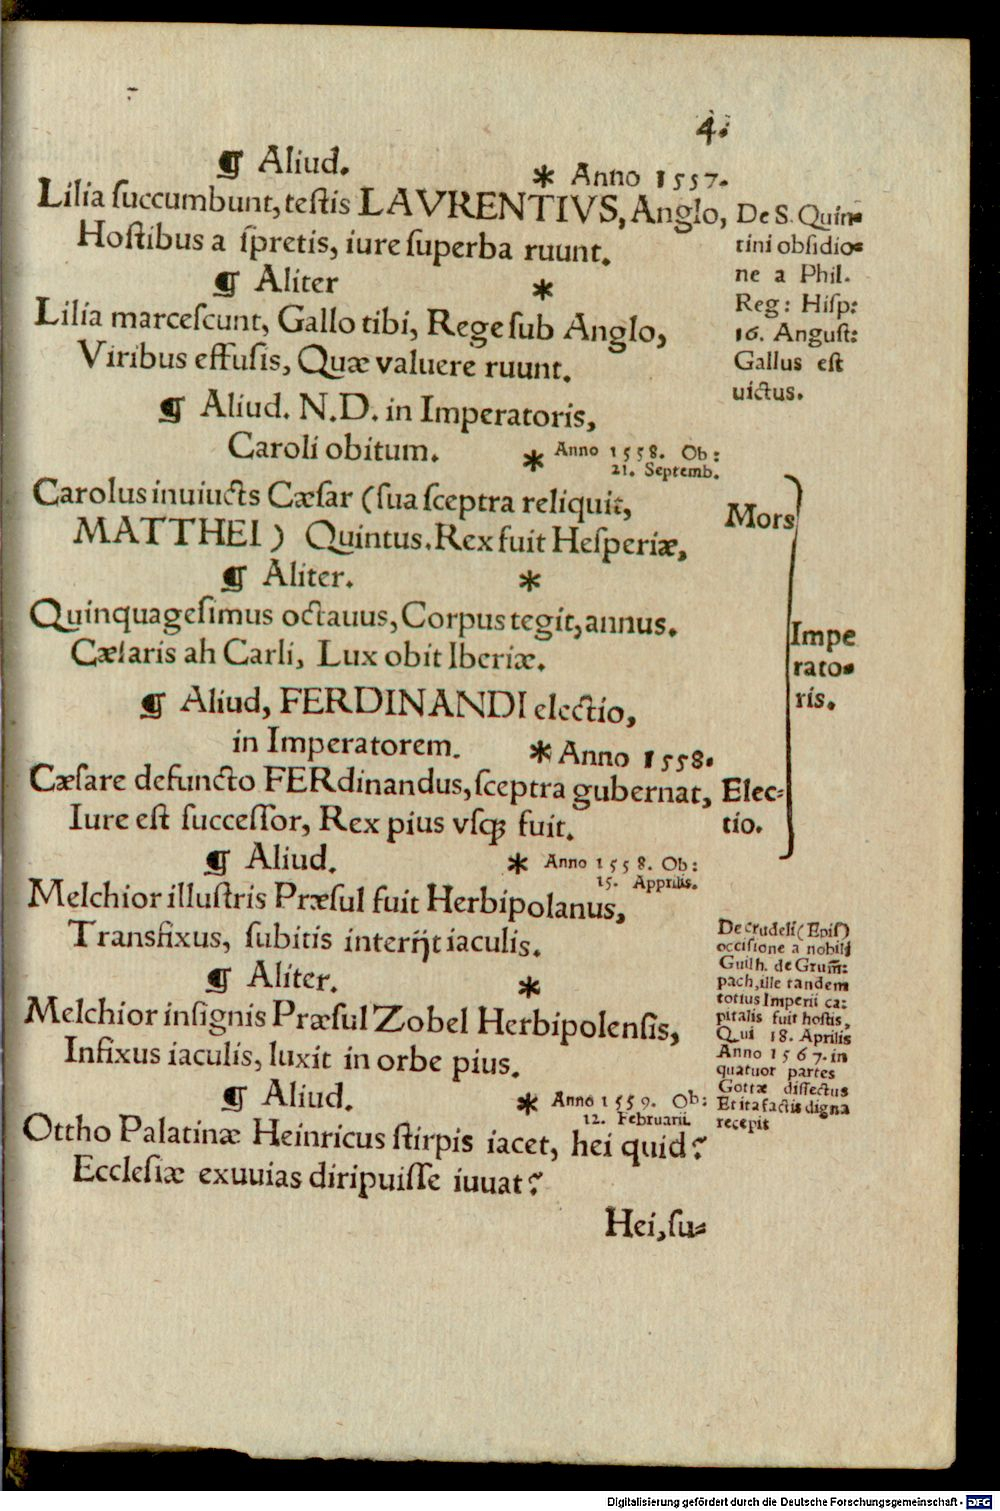 4.
¶ Aliud. * Anno 1557.
Lilia ſuccumbunt, teſtis LAVRENTIVS, Anglo,
Hoſtibus a ſpretis, iure ſuperba ruunt.
De S. Quin=
tini obſidio=
ne a Phil.
Reg: Hiſp:
16. Anguſt:
Gallus eſt
uictus.
¶ Aliter *
Lilia marceſcunt, Gallo tibi, Rege ſub Anglo,
Viribus effuſis, Quæ valuere ruunt.
¶ Aliud. N.D. in Imperatoris,
Caroli obitum. * Anno 1558. Ob:
21. Septemb.
Carolus inuiucts Cæſar (ſua ſceptra reliquit,
MATTHEI) Quintus. Rex fuit Heſperiæ,
Mors
¶ Aliter. *
Quinquageſimus octauus, Corpus tegit, annus.
Cæſaris ah Carli, Lux obit Iberiæ.
Impe
rato=
ris.
¶ Aliud, FERDINANDI electio,
in Imperatorem. * Anno 1558.
Cæſare defuncto FERdinandus, ſceptra gubernat,
Iure eſt ſucceſſor, Rex pius vſqꝫ fuit.
Elec=
tio.
¶ Aliud. * Anno 1558. Ob:
15. Apprilis.
Melchior illuſtris Præſul fuit Herbipolanus,
Transfixus, ſubitis interijt iaculis.
¶ Aliter. *
Melchior inſignis Præſul Zobel Herbipolenſis,
Infixus iaculis, luxit in orbe pius.
De crudeli (Epiſ)
occiſione a nobili
Guilh. de Grum̃:
pach, ille tandem
totius Imperii ca:
pitalis fuit hoſtis,
Qui 18. Aprilis
Anno 1567. in
quatuor partes
Gottæ diſſectus
Et ita factis digna
recepit
¶ Aliud. * Anno 1559. Ob:
12. Februarii.
Ottho Palatinæ Heinricus ſtirpis iacet, hei quid?
Eccleſiæ exuuias diripuiſſe iuuat?
Hei, ſu=
Digitalisierung gefördert durch die Deutsche Forschungsgemeinschaft - DFG